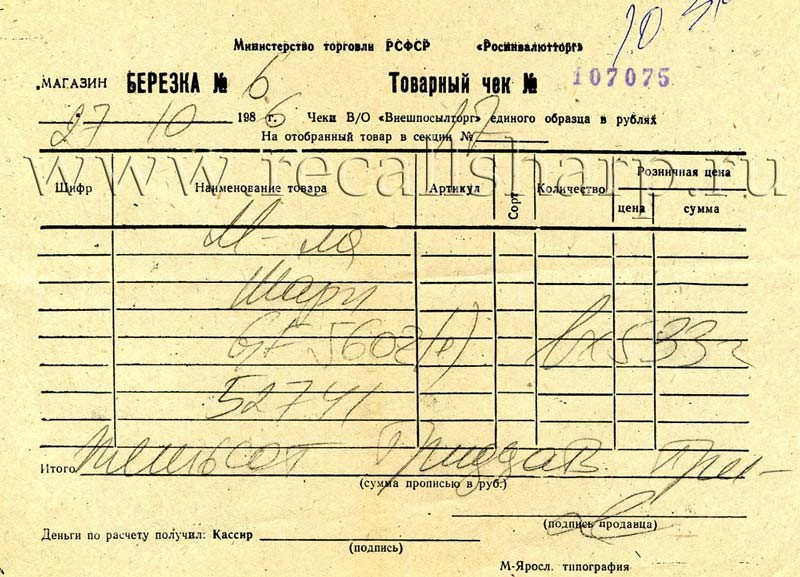 Министерство торговли РСФСР «Росинвалютторг»
МАГАЗИН БЕРЕЗКА № 6 Товарный чек № 107075
27 10 1986 г. Чеки В/О «Внешпосылторг» единого образца в рублях
На отобранный товар в секции № 17
www.recallsharp.ru
Шифр Наименование товара Артикул Сорт Количество Розничная цена
цена сумма
М-ла
Шарп
GF 560
52741
533
Итого пятьсот тридцать три
(сумма прописью в руб.)
(подпись продавца)
Деньги по расчету получил: Кассир
(подпись)
М-Яросл. типография